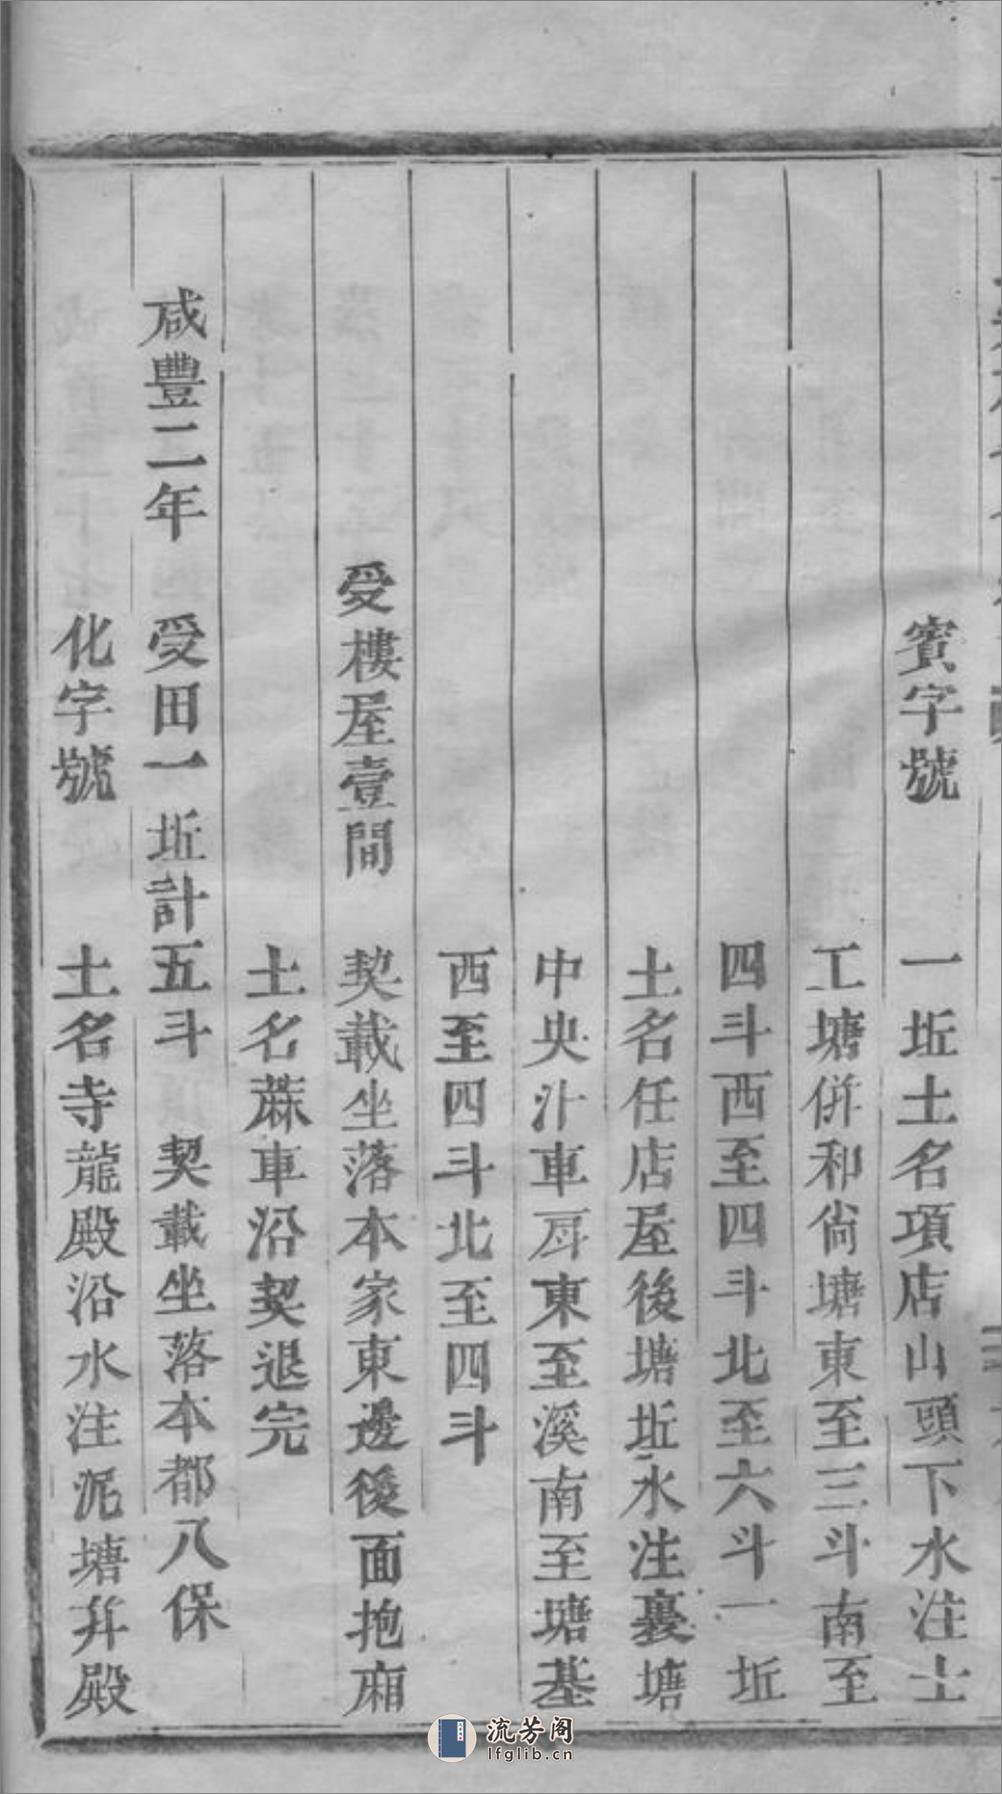 賓字號　一坵土名項店山頭下水注士
工塘併和尚塘東至三斗南至
四斗西至四斗北至六斗一坵
土名任店屋後塘坵水注裏塘
中央汁車厈東至溪南至塘基
西至四斗北至四斗
受樓屋壹間　契載坐落本家東邊後面抱廂
土名蔴車沿契退完
咸豐二年　受田一坵計五斗　契載坐落本都八保
化字號　土名寺龍殿沿水注泥塘并殿
流芳阁
lfglib.cn